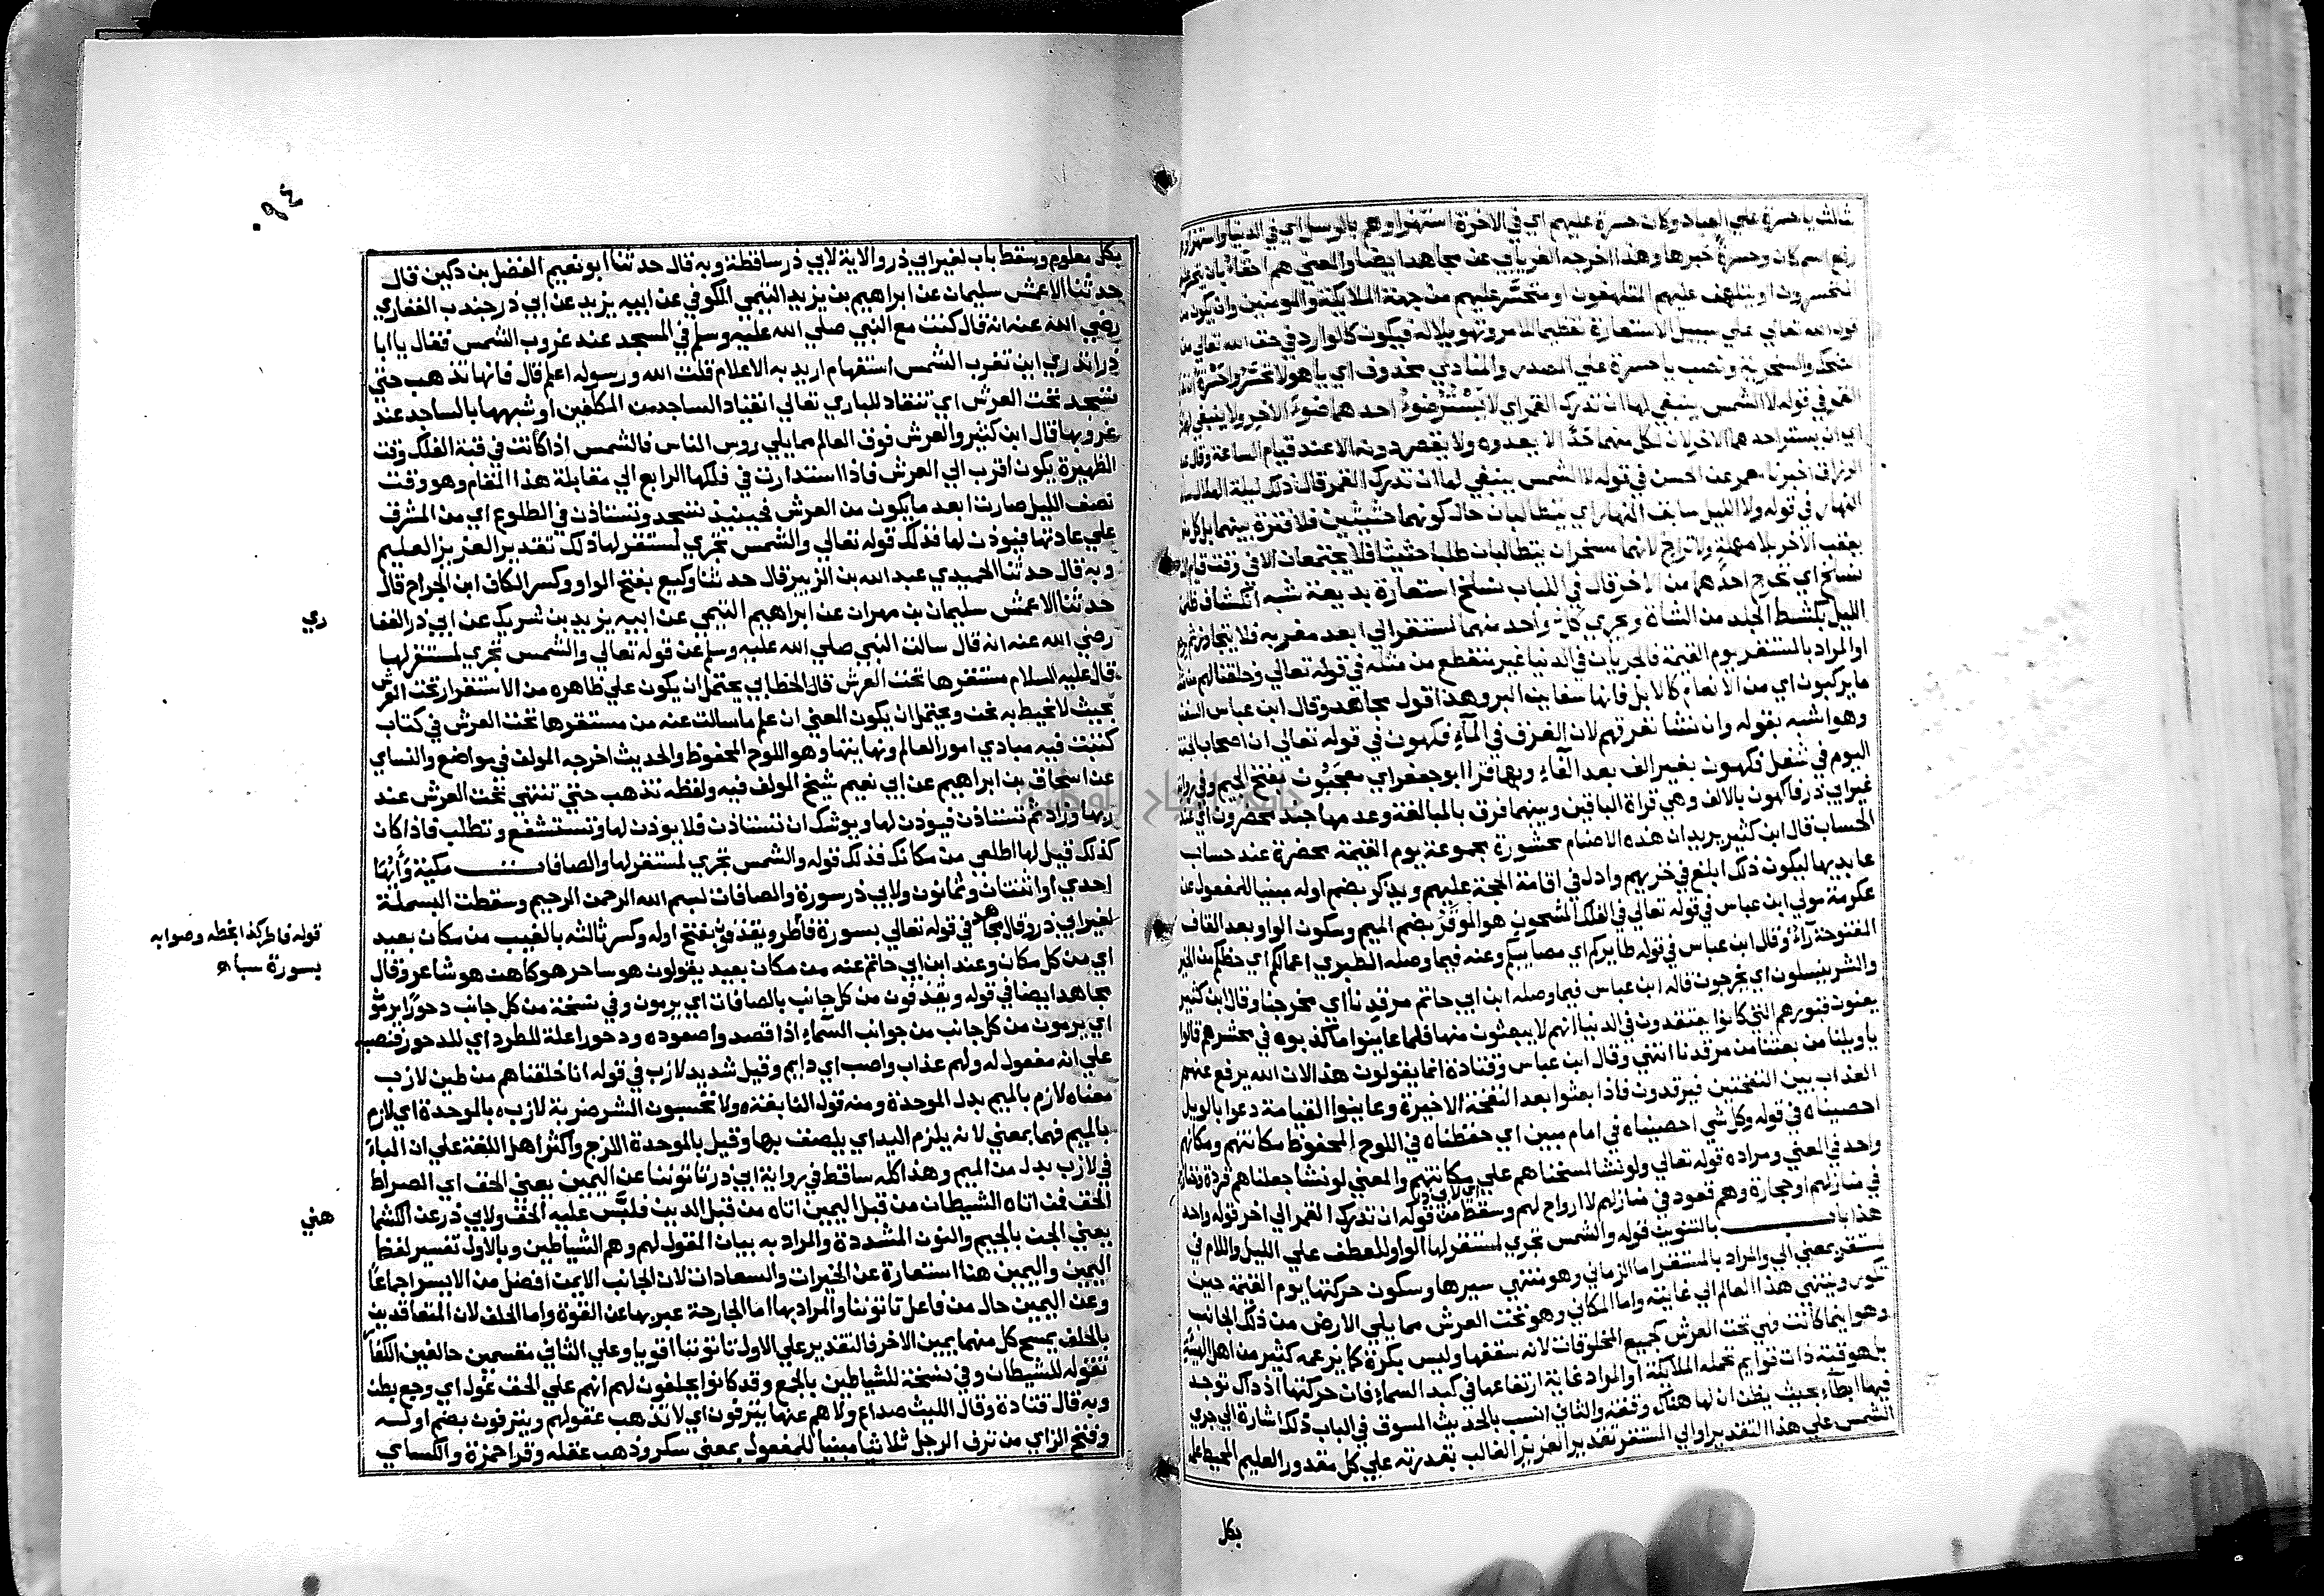 ثالث يا حسرة علي العباد وكان حسرة عليهم اي في الاخرة استهزاوهم بالرسل اي في الدنيا واستهزاوهم
رفع اسم كان وحسرة خبرها وهذا اخرجه الفريابي عن مجاهد ايضا والمعني هم احقاء بان
يتحسرون او يتلهف عليهم المتلهفون او متحسر عليهم من جهة الملايكة والمومنين وان يكون من
قول الله تعالي علي سبيل الاستعارة تعظيما للامر وتهويلا له فيكون كالوارد في حق الله تعالي من
الضحك والسخرية ونصب يا حسرة علي المصدر والمنادي محذوف اي يا هولا تحسروا حسرة
القمر في قوله لا الشمس ينبغي لها ان تدرك القمر اي لا يستر ضوء احدهما ضوء الاخر ولا ينبغي لهما
اي ان يستر احدهما الاخر لان لكل منهما حدا لا يعدوه ولا يقصر دونه الا عند قيام الساعة وقال عبد
الرزاق اخبرنا معمر عن الحسن في قوله لا الشمس ينبغي لها ان تدرك القمر قال ذلك ليلة الهلال سابق
النهار في قوله ولا الليل سابق النهار اي يتطالبان حال كونهما حثيثين فلا فترة بينهما بل كل منهما
يعقب الاخر بلا مهلة ولا تراخ لانهما مسخران يتطالبان طلبا حثيثا فلا يجتمعان الا في وقت قيام
نسلخ اي نخرج احدهما من الاخر قال في اللباب نسلخ استعارة بديعة شبه انكشاف ظلمة
الليل بكشط الجلد من الشاة ويجري كل واحد منهما لمستقر الي ابعد مغربه فلا يتجاوزه ثم يرجع
او المراد بالمستقر يوم القيمة فالجريان في الدنيا غير منقطع من مثله في قوله تعالي وخلقنا لهم من مثله
ما يركبون اي من الانعام كالابل فانها سفاين البر وهذا قول مجاهد وقال ابن عباس السفن
وهو اشبه بقوله وان نشا نغرقهم لان الغرق في الماء فكهون في قوله تعالي ان اصحاب الجنة
اليوم في شغل فكهون بغير الف بعد الفاء وبها قرا ابو جعفر اي معجبون بفتح الجيم وفي رواية
غير ابي ذر فاكهون بالالف وهي قراة الباقين وبينهما فرق بالمبالغة وعدمها جند محضرون اي عند
الحساب قال ابن كثير يريد ان هذه الاصنام محشورة مجموعة يوم القيمة محضرة عند حساب
عابديها ليكون ذلك ابلغ في خزيهم وادل في اقامة الحجة عليهم ويذكر بضم اوله مبنيا للمفعول عن
عكرمة مولي ابن عباس في قوله تعالي في الفلك المشحون هو الموقر بضم الميم وسكون الواو بعد القاف
المفتوحة راء وقال ابن عباس في قوله طايركم اي مصايبكم وعنه فيما وصله الطبري اعمالكم اي حظكم من الخير
والشر ينسلون اي يخرجون قاله ابن عباس فيما وصله ابن ابي حاتم مرقدنا اي مخرجنا وقال ابن كثير
يعنون قبورهم التي كانوا يعتقدون في الدنيا انهم لا يبعثون منها فلما عاينوا ما كذبوه في محشرهم قالوا
يا ويلنا من بعثنا من مرقدنا انتهي وقال ابن عباس وقتادة انما يقولون هذا لان الله يرفع عنهم
العذاب بين النفختين فيرقدون فاذا بعثوا بعد النفخة الاخيرة وعاينوا القيامة دعوا بالويل
احصيناه في قوله وكل شي احصيناه في امام مبين اي حفظناه في اللوح المحفوظ مكانتهم ومكانهم
واحد في المعني ومراده قوله تعالي ولو نشا لمسخناهم علي مكانتهم والمعني لو نشا جعلناهم قردة وخنازير
في منازلهم او حجارة وهم قعود في منازلهم لا ارواح لهم وسقط من قوله ان تدرك القمر الي اخر قوله واحد
لابي ذر
هذا باب بالتنوين قوله والشمس تجري لمستقر لها الواو للعطف علي الليل واللام في
لمستقر بمعني الي والمراد بالمستقر اما الزماني وهو منتهي سيرها وسكون حركتها يوم القيمة حين
تكور وينتهي هذا العالم الي غايته واما المكاني وهو تحت العرش مما يلي الارض من ذلك الجانب
وهو اينما كانت فهي تحت العرش كجميع المخلوقات لانه سقفها وليس بكرة كما يزعمه كثير من اهل الهيئة
بل هو قبة ذات قوايم تحمله الملايكة او المراد غاية ارتفاعها في كبد السماء فان حركتها اذ ذاك توجد
فيها ابطاء بحيث يظن ان لها هناك وقفة والثاني انسب بالحديث المسوق في الباب ذلك اشارة الي جري
الشمس علي هذا التقدير او الي المستقر تقدير العزيز الغالب بقدرته علي كل مقدور العليم المحيط علمه
بكل
٠٩٤
بكل معلوم وسقط باب لغير ابي ذر والاية لابي ذر ساقطة وبه قال حدثنا ابو نعيم الفضل بن دكين قال
حدثنا الاعمش سليمان عن ابراهيم بن يزيد التيمي الكوفي عن ابيه يزيد عن ابي ذر جندب الغفاري
رضي الله عنه انه قال كنت مع النبي صلي الله عليه وسلم في المسجد عند غروب الشمس فقال يا ابا
ذر اتدري اين تغرب الشمس استفهام اريد به الاعلام قلت الله ورسوله اعلم قال فانها تذهب حتي
تسجد تحت العرش اي تنقاد للباري تعالي انقياد الساجد من المكلفين او شبهها بالساجد عند
غروبها قال ابن كثير والعرش فوق العالم مما يلي روس الناس فالشمس اذا كانت في قبة الفلك وقت
الظهيرة يكون اقرب الي العرش فاذا استدارت في فلكها الرابع الي مقابلة هذا المقام وهو وقت
نصف الليل صارت ابعد ما يكون من العرش فحينيذ تسجد وتستاذن في الطلوع اي من المشرق
علي عادتها فيوذن لها فذلك قوله تعالي والشمس تجري لمستقر لها ذلك تقدير العزيز العليم
وبه قال حدثنا الحميدي عبد الله بن الزبير قال حدثنا وكيع بفتح الواو وكسر الكاف ابن الجراح قال
حدثنا الاعمش سليمان بن مهران عن ابراهيم التيمي عن ابيه يزيد بن شريك عن ابي ذر الغفا
ري
رضي الله عنه انه قال سالت النبي صلي الله عليه وسلم عن قوله تعالي والشمس تجري لمستقر لها
قال عليه السلام مستقرها تحت العرش قال الخطابي يحتمل ان يكون علي ظاهره من الاستقرار تحت العرش
بحيث لا نحيط به نحن ويحتمل ان يكون المعني ان علم ما سالت عنه من مستقرها تحت العرش في كتاب
كتبت فيه مبادي امور العالم ونهايتها وهو اللوح المحفوظ والحديث اخرجه المولف في مواضع والنساي
عن اسحاق بن ابراهيم عن ابي نعيم شيخ المولف فيه ولفظه تذهب حتي تنتهي تحت العرش عند
ربها وزاد ثم تستاذن فيوذن لها ويوشك ان تستاذن فلا يوذن لها وتستشفع وتطلب فاذا كان
كذلك قيل لها اطلعي من مكانك فذلك قوله والشمس تجري لمستقر لها والصافات مكية وآيها
احدي او اثنتان وثمانون ولابي ذر سورة والصافات بسم الله الرحمن الرحيم وسقطت البسملة
لغير ابي ذر وقال مجاهد في قوله تعالي بسورة فاطر ويقذفون بفتح اوله وكسر ثالثه بالغيب من مكان بعيد
قوله فاطر كذا بخطه وصوابه
بسورة سبا اه
اي من كل مكان وعند ابن ابي حاتم عنه من مكان بعيد يقولون هو ساحر هو كاهن هو شاعر وقال
مجاهد ايضا في قوله ويقذفون من كل جانب بالصافات اي يرمون وفي نسخة من كل جانب دحورا يرمون
اي يرمون من كل جانب من جوانب السماء اذا قصدوا صعوده ودحورا علة للطرد اي للدحور فنصبه
علي انه مفعول له ولهم عذاب واصب اي دايم وقيل شديد لازب في قوله انا خلقناهم من طين لازب
معناه لازم بالميم بدل الموحدة ومنه قول النابغة ولا تحسبون الشر ضربة لازب بالموحدة اي لازم
بالميم فهما بمعني لانه يلزم اليد اي يلصق بها وقيل بالموحدة اللزج واكثر اهل اللغة علي ان الباء
في لازب بدل من الميم وهذا كله ساقط في رواية ابي ذر تاتوننا عن اليمين يعني الحق اي الصراط
الحق فمن اتاه الشيطان من قبل اليمين اتاه من قبل الدين فلبس عليه الحق ولابي ذر عن الكشما
هني
يعني الجن بالجيم والنون المشددة والمراد به بيان المقول لهم وهم الشياطين وبالاول تفسير لفظ
اليمين واليمين هنا استعارة عن الخيرات والسعادات لان الجانب الايمن افضل من الايسر اجماعا
وعن اليمين حال من فاعل تاتوننا والمراد بها اما الجارحة عبر بها عن القوة واما الحلف لان المتعاقدين
بالحلف يمسح كل منهما يمين الاخر فالتقدير علي الاول تاتوننا اقويا وعلي الثاني مقسمين حالفين الكفار
تقوله للشيطان وفي نسخة للشياطين بالجمع وقد كانوا يحلفون لهم انهم علي الحق غول اي وجع بطن
وبه قال قتادة وقال الليث صداع ولا هم عنها ينزفون اي لا تذهب عقولهم وينزفون بضم اوله
وفتح الزاي من نزف الرجل ثلاثيا مبنيا للمفعول بمعني سكر وذهب عقله وقرا حمزة والكساي